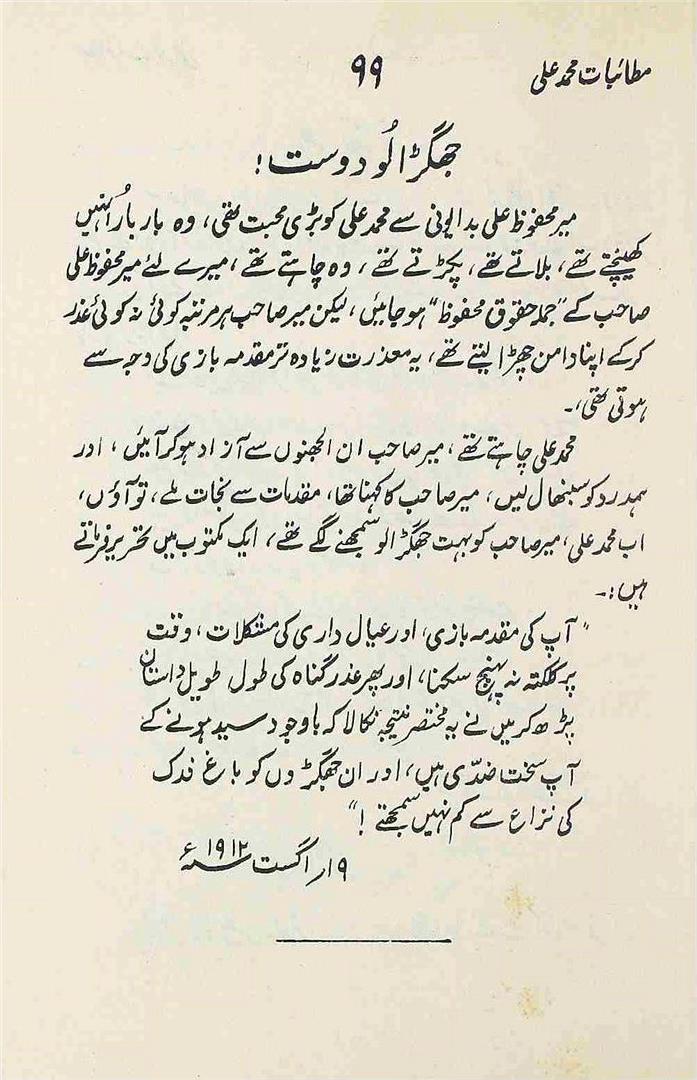 مطائبات محمد علی
۹۹
جھگڑالُو دوست!
میر محفوظ علی بدایونی سے محمد علی کو بڑی محبت تھی، وہ بار بار اُنہیں
کھینچتے تھے، بلاتے تھے، پکڑتے تھے، وہ چاہتے تھے، میرے لئے میر محفوظ علی
صاحب کے "جملہ حقوق محفوظ" ہو جائیں، لیکن میر صاحب ہر مرتبہ کوئی نہ کوئی عذر
کرکے اپنا دامن چھڑا لیتے تھے، یہ معذرت زیادہ تر مقدمہ بازی کی وجہ سے
ہوتی تھی،۔
محمد علی چاہتے تھے، میر صاحب ان الجھنوں سے آزاد ہو کر آئیں، اور
ہمدرد کو سنبھال لیں، میر صاحب کا کہنا تھا، مقدمات سے نجات ملے، تو آؤں،
اب محمد علی، میر صاحب کو بہت جھگڑالو سمجھنے لگے تھے، ایک مکتوب میں تحریر فرماتے
ہیں:۔
"آپ کی مقدمہ بازی، اور عیال داری کی مشکلات، وقت
پر کلکتہ نہ پہنچ سکنا، اور پھر عذر گناہ کی طول طویل داستان
پڑھ کر میں نے یہ مختصر نتیجہ نکالا کہ باوجود سید ہونے کے
آپ سخت ضدّی ہیں، اور ان جھگڑوں کو باغ فدک
کی نزاع سے کم نہیں سمجھتے!"
۱۹ر اگست ۱۹۱۲ء